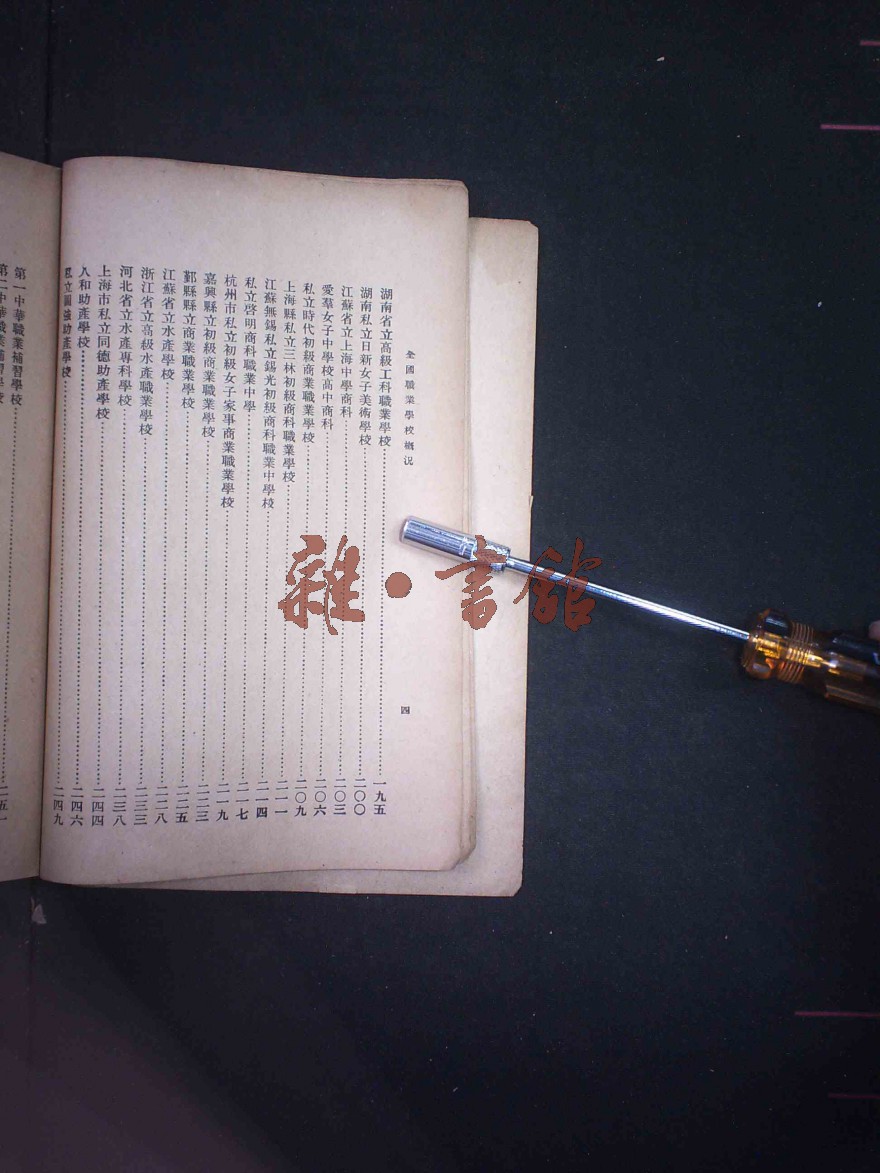 全國職業學校概況
四
湖南省立高級工科職業學校⋯⋯一九五
湖南私立日新女子美術學校⋯⋯二〇〇
江蘇省立上海中學商科⋯⋯二〇三
愛羣女子中學校高中商科⋯⋯二〇六
私立時代初級商業職業學校⋯⋯二〇九
上海縣私立三林初級商科職業學校⋯⋯二一一
江蘇無錫私立錫光初級商科職業中學校⋯⋯二一四
私立啓明商科職業中學⋯⋯二一七
杭州市私立初級女子家事商業職業學校⋯⋯二一九
嘉興縣立初級商業職業學校⋯⋯二二三
鄞縣縣立商業職業學校⋯⋯二二五
江蘇省立水產學校⋯⋯二二八
浙江省立高級水產職業學校⋯⋯二三三
河北省立水產專科學校⋯⋯二三八
上海市私立同德助產學校⋯⋯二四四
人和助產學校⋯⋯二四六
私立國強助產學校⋯⋯二四九
第一中華職業補習學校⋯⋯二五一
第二中華職業補習學校
雜·書館